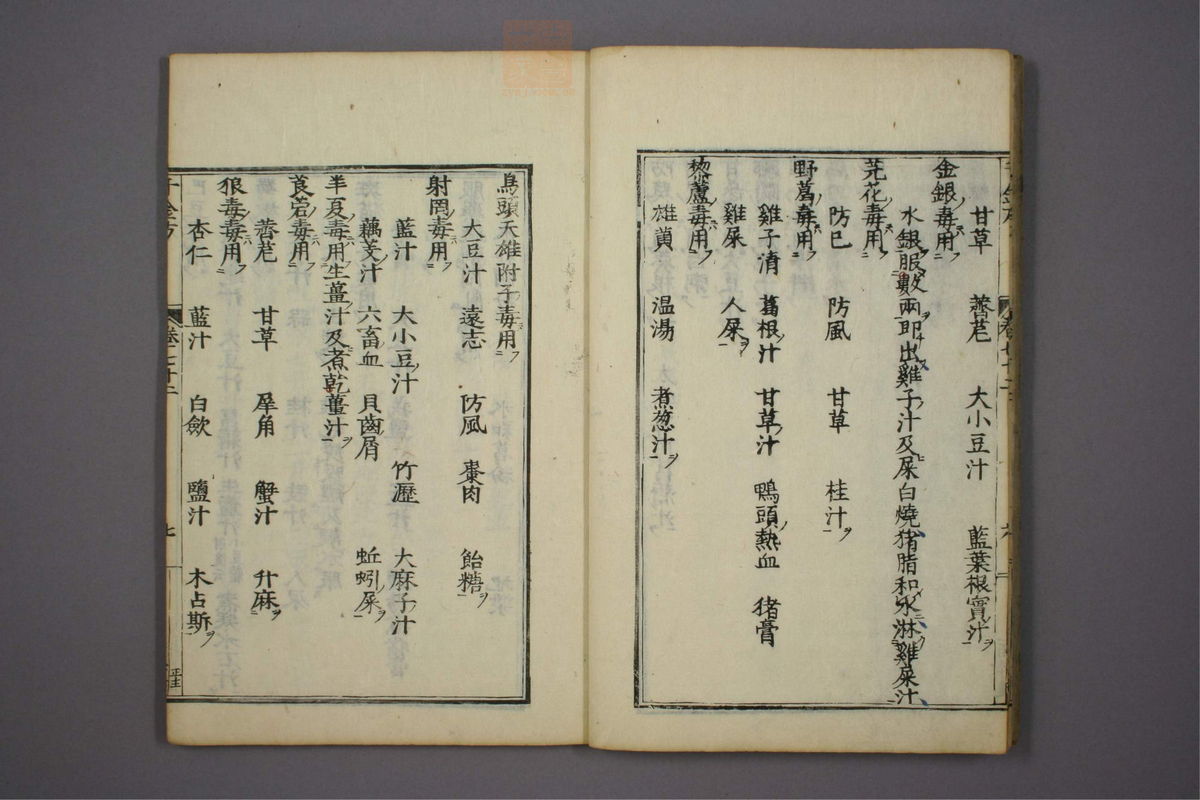 甘草 薺苨 大小豆汁 藍葉根實汁
金銀毒用
水銀服數兩即出雞子汁及屎白燒猪脂和水淋雞屎汁
芫花毒用
防已 防風 甘草 桂汁
野葛毒用
雞子清 葛根汁 甘草汁 鴨頭熱血 猪膏
雞屎 人屎
藜蘆毒用
雄黃 温湯 煮葱汁
烏頭天雄附子毒用
大豆汁 遠志 防風 棗肉 飴糖
射罔毒用
藍汁 大小豆汁 竹瀝 大麻子汁
藕芰汁 六畜血 貝齒屑 蚯蚓屎
半夏毒用生薑汁及煮乾薑汁
莨菪毒用
薺苨 甘草 犀角 蟹汁 升麻
狼毒毒用
杏仁 藍汁 白斂 鹽汁 木占斯